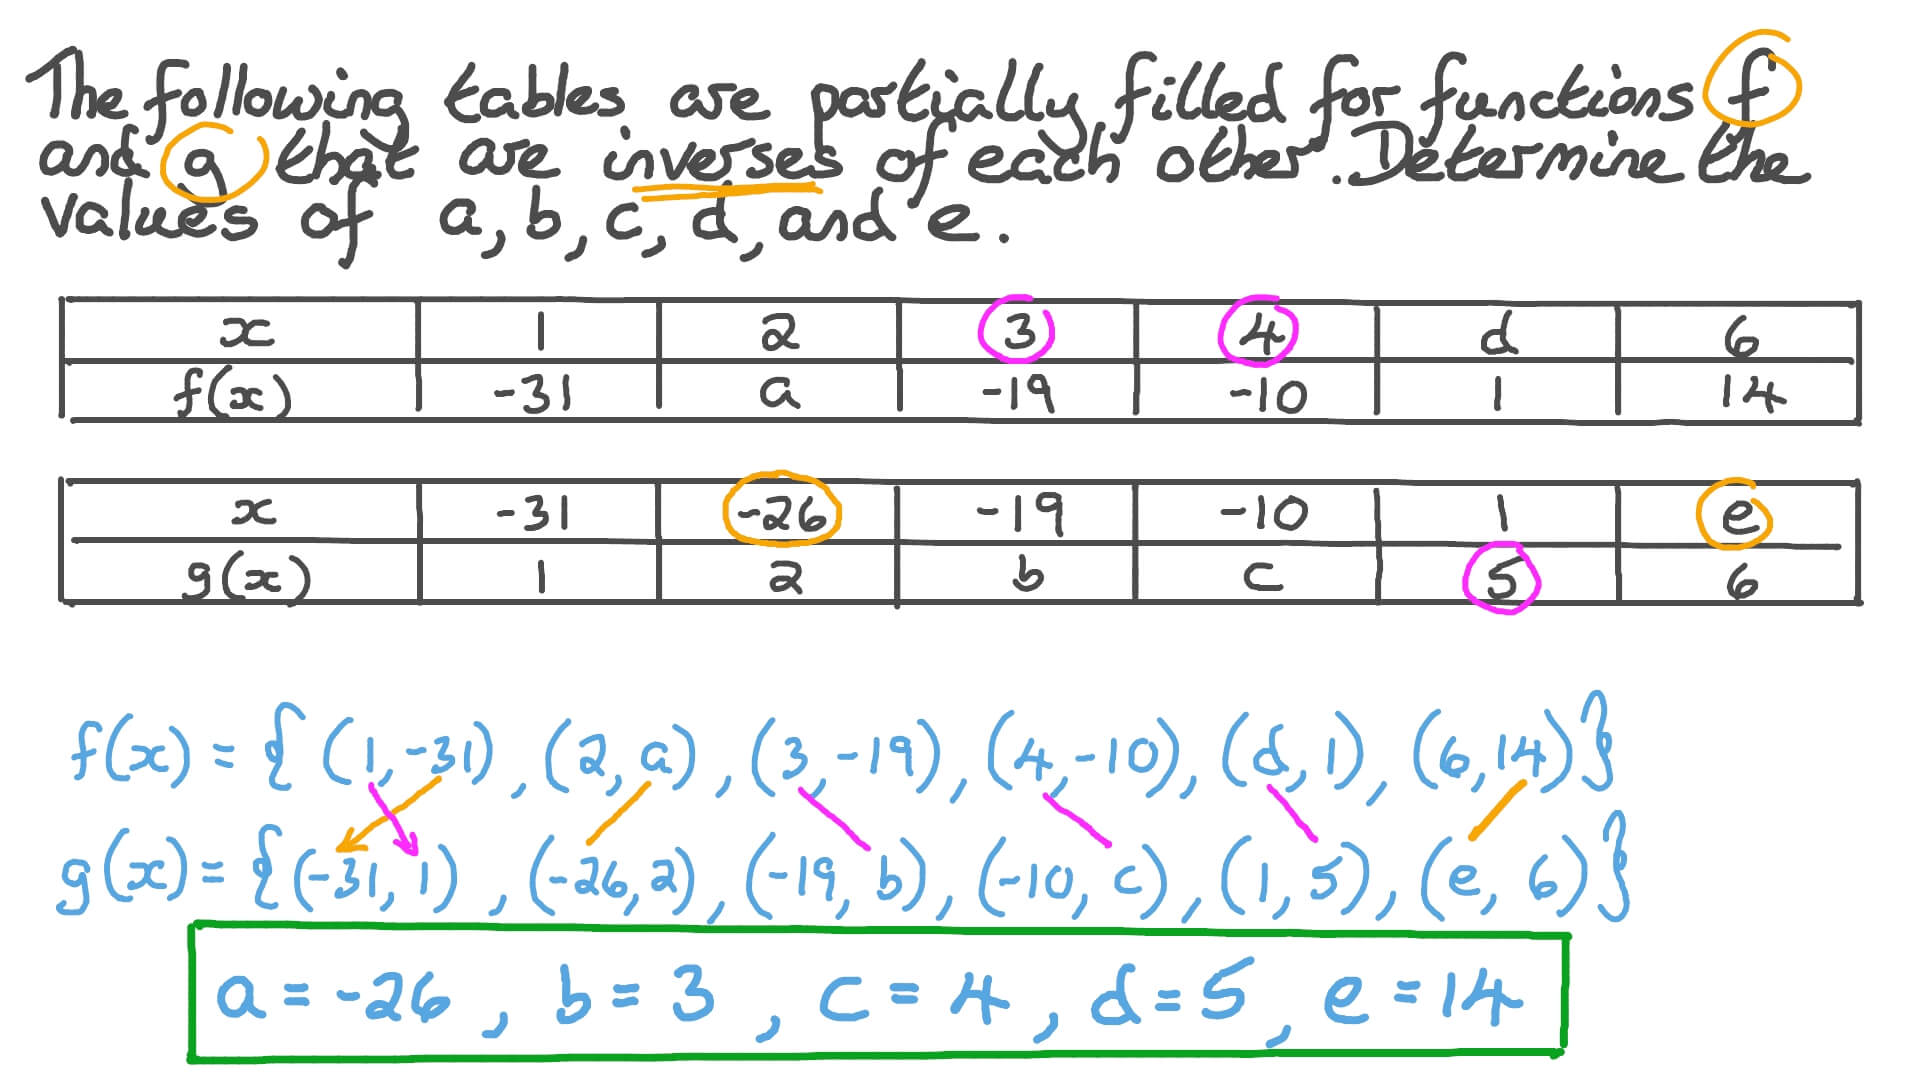 The following tables are partially filled for functions f
and g that are inverses of each other. Determine the
values of a, b, c, d, and e.
x 1 2 3 4 d 6
f(x) -31 a -19 -10 1 14
x -31 -26 -19 -10 1 e
g(x) 1 2 b c 5 6
f(x) = { (1, -31), (2, a), (3, -19), (4, -10), (d, 1), (6, 14) }
g(x) = { (-31, 1), (-26, 2), (-19, b), (-10, c), (1, 5), (e, 6) }
a = -26, b = 3, c = 4, d = 5, e = 14